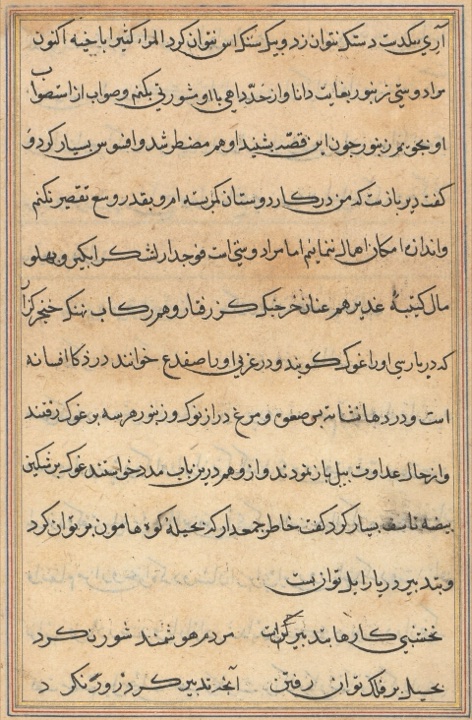 آری بیکدست دستک نتوان زد و بیک سنک اس نتوان کرد المراء کثیرا باخیه اکنون
مرا دوستی زنبور بغایت دانا و از حد داهی با او شورتی بکنم و صواب از استصواب
او بجویم زنبور چون این قصه بشنید او هم مضطر شد و افسوس بسیار کرد و
کفت دیر بازست که من در کار دوستان کمر بسته ام و بقدر وسع تقصیر نکنم
و اندازه امکان اهمال ننمایم اما مرا دوستی است فوجدار لشکر ابکیر و پهلو
مال کتیبه غدیر هم عنان خرچنک کژ رفتار و هم رکاب نهنک خنجر کزار
که در پارسی او را غوک کویند و در عربی او را ضفدع خوانند در ذکا افسانه
است و در دها نشانه پس صعوه و مرغ دراز نوک و زنبور هر سه بر غوک رفتند
و از حال عداوت پیل باز نمودند و ازو هم درین باب مدد خواستند غوک بر شکستن
بیضه تاسف بسیار کرد کفت خاطر جمع دار که بحیله کوه هامون بر توان کرد
و بتدبیر دریا را پل توان بست
نخشبی کارها بتدبیر است مردم هوشمند شور نکرد
بحیل بر فلک توان رفتن آنچه تدبیر کرد زور نکرد